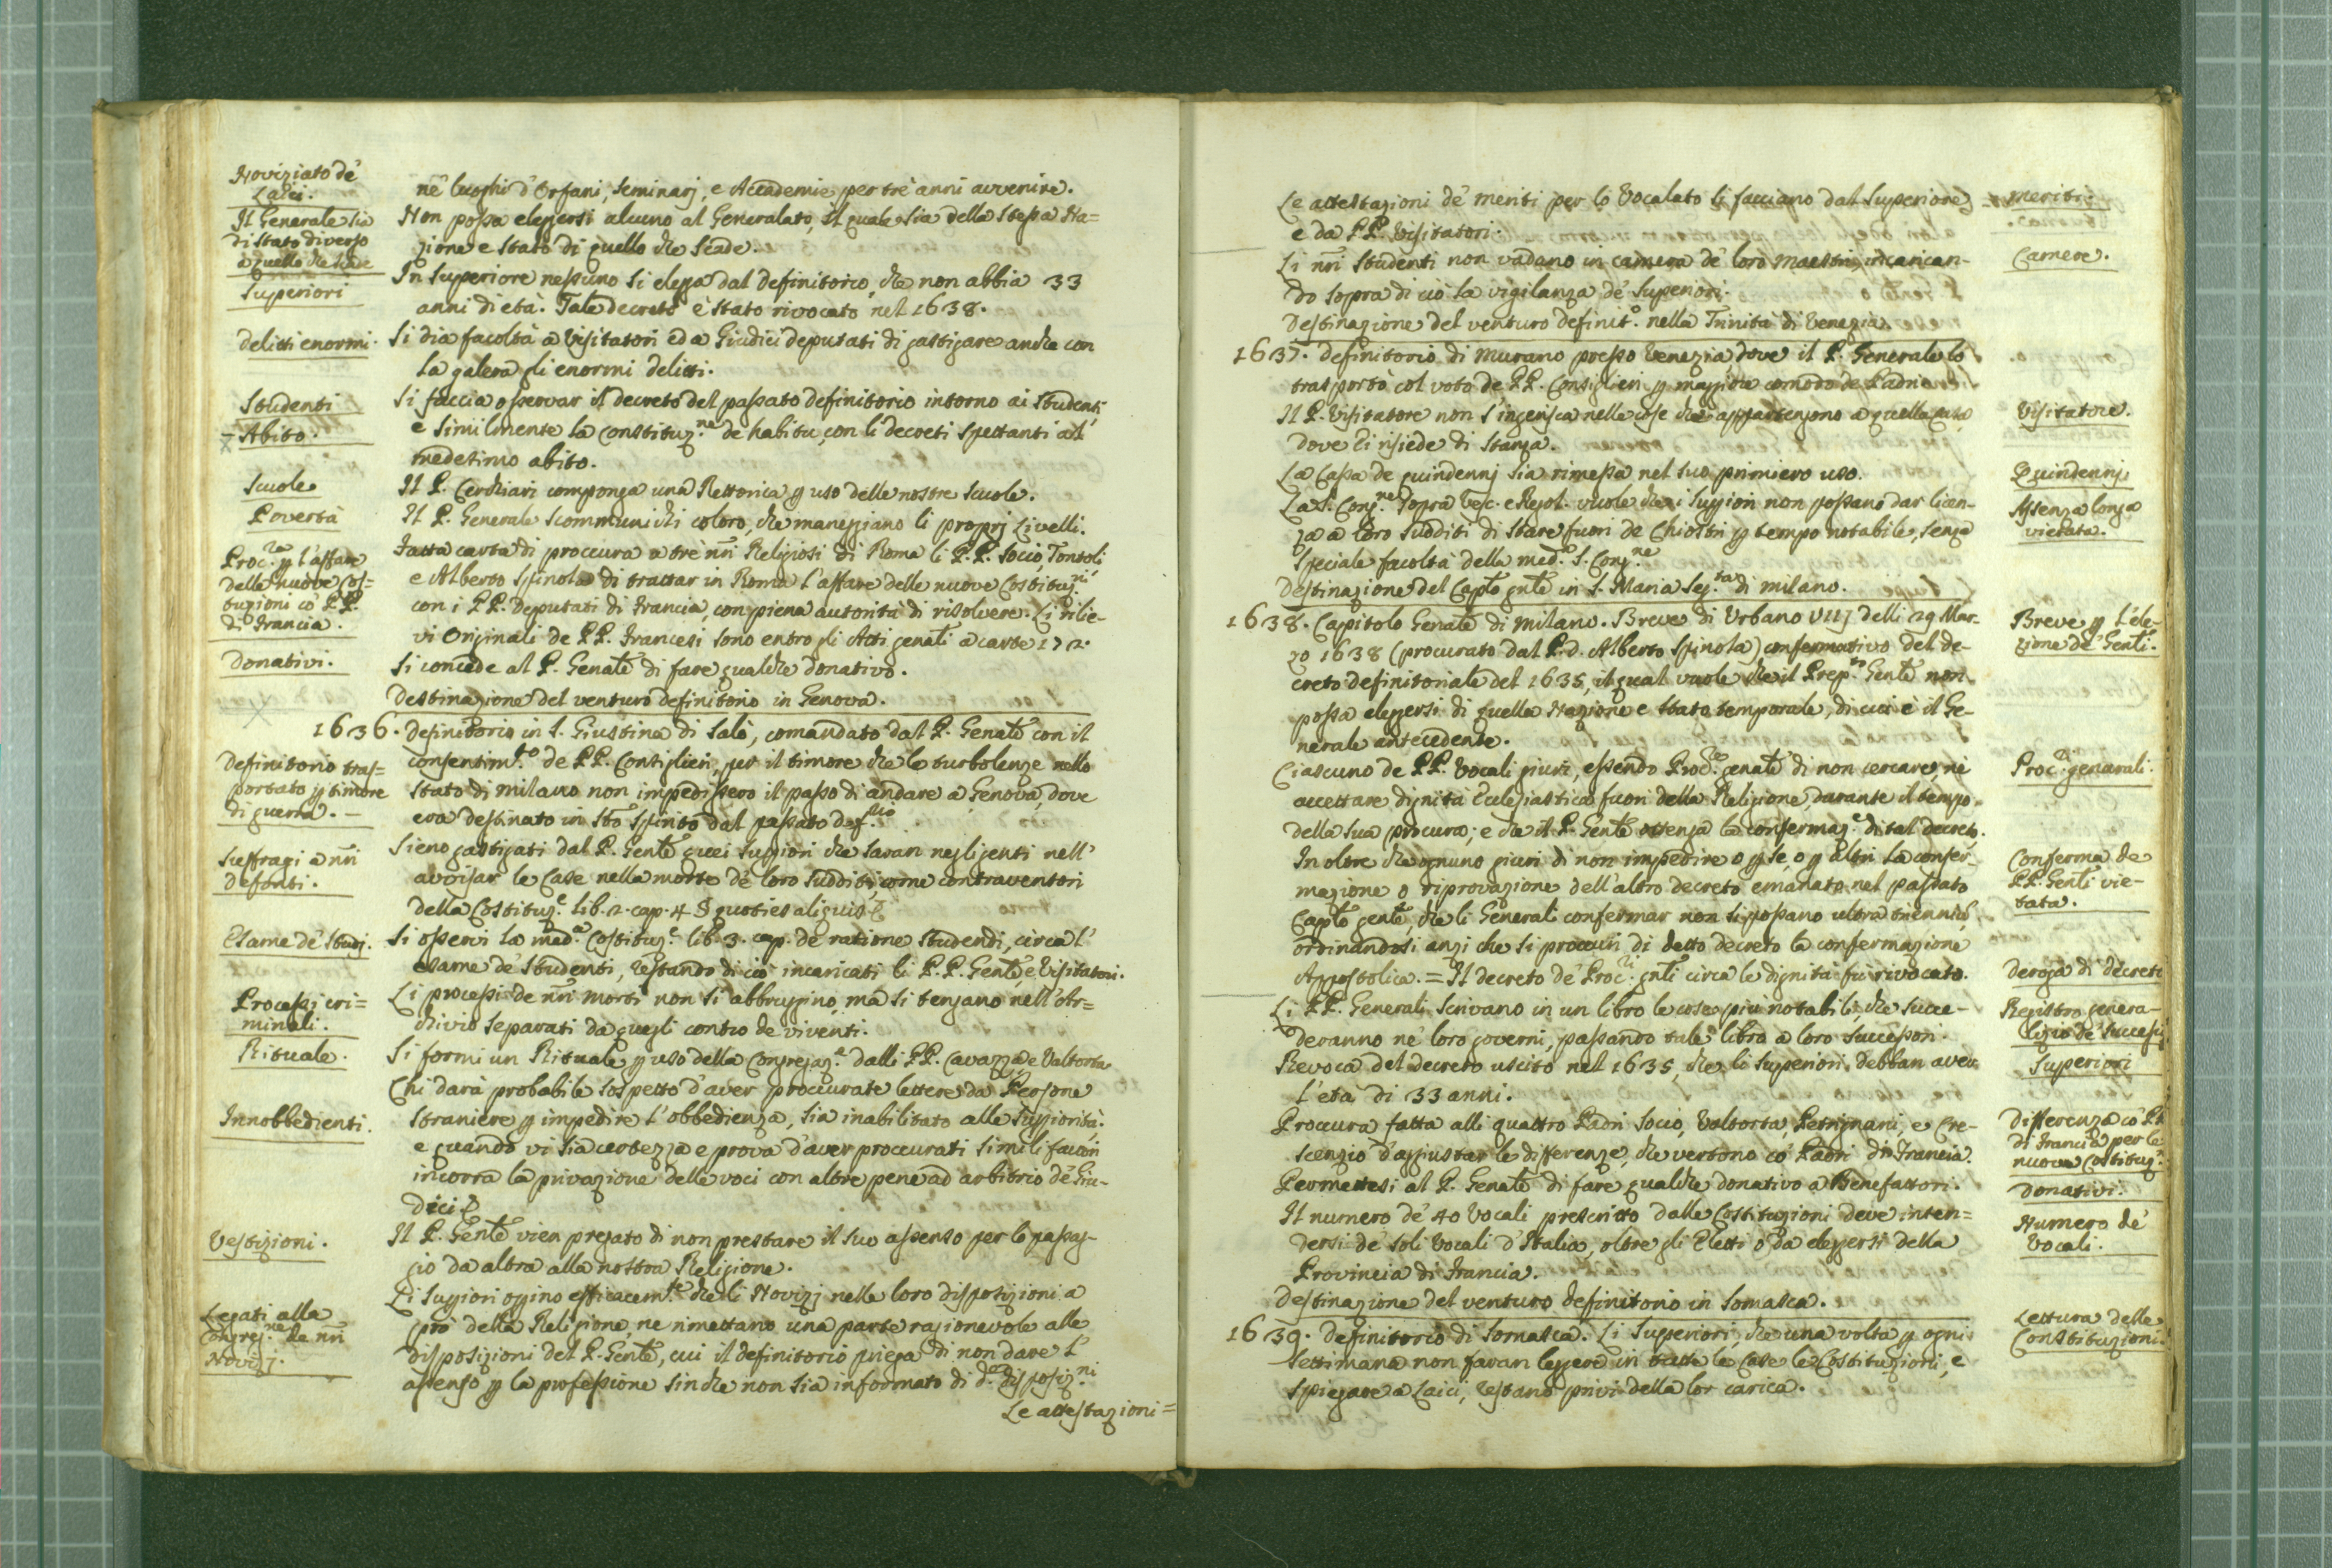 Noviziato de'
Laici.
Il Generale sia
di stato diverso
a quello che scade
Superiori
delitti enormi.
Studenti
Abito.
Scuole
Povertà
Proc.ra p l'affare
delle nuove Cos=
tuzioni co' PP.
di Francia.
Donativi.
Definitorio tras=
portato p timore
di guerra.
Suffragi a nri
defonti.
Esame de' Studj.
Processi cri=
minali.
Rituale.
Innobbedienti.
Vestizioni.
Legati alla
Congreg.ne de nri
Novizj.
ne' luoghi d'Orfani, Seminarj, e Accademie per tre anni avvenire.
Non possa eleggersi alcuno al Generalato, il quale sia della stessa Na=
zione e Stato di quello che scade.
In Superiore nessuno si elegga dal definitorio, che non abbia 33
anni di età. Tale decreto è stato rivocato nel 1638.
Si dia facoltà a Visitatori ed a Giudici deputati di gastigare anche con
la galera gli enormi delitti.
Si faccia osservar il decreto del passato definitorio intorno ai Studenti
e similmente la Constituz.ne de habitu, con li decreti spettanti al
medesimo abito.
Il P. Cerchiari componga una Rettorica p uso delle nostre Scuole.
Il P. Generale scommunichi coloro, che maneggiano li proprj Livelli.
Fatta carta di proccura a tre nri Religiosi di Roma li P.P. Socio, Tontoli
e Alberto Spinola di trattar in Roma l'affare delle nuove Costituz.ni
con i PP. Deputati di Francia, con piena autorità di risolvere. Li rilie-
vi Originali de PP. Francesi sono entro gli Atti genali a carte 172.
Si concede al P. Genale di fare qualche donativo.
Destinazione del venturo definitorio in Genova.
1636. Definitorio in S. Giustina di Salò, comandato dal P. Genale con il
consentim.to de PP. Consiglieri, per il timore che le turbolenze nello
Stato di Milano non impedissero il passo di andare a Genova, dove
era destinato in Sto Spirito dal passato def.rio
Sieno gastigati dal P. Gentle quei Suggiori che saran negligenti nell'
avvisar le Case nella morte de' loro sudditi, come contraventori
della Costituz.e lib. 2. cap. 4. § quoties aliquis
Si osservi la med.a Costituz.e lib. 3. cap. de ratione studendi, circa l'
esame de' Studenti, restando di ciò incaricati li P.P. Gentle, e Visitatori.
Li processi de nri morti non si abbruggino, ma si tengano nell'Ar=
chivio separati da quegli contro de viventi.
Si formi un Rituale p uso della Congregaz.e dalli PP. Cavazza, e Valtorta
Chi darà probabile sospetto d'aver proccurate lettere da Persone
straniere p impedire l'obbedienza, sia inabilitato alle suggiorità.
e quando vi sia certezza e prova d'aver proccurati simili favori
incorra la privazione delle voci con altre pene ad arbitrio de' Giu-
dici
Il P. Gentle vien pregato di non prestare il suo assenso per lo passag-
gio da altra alla nostra Religione.
Li Suggiori oprino efficacem.te che li Novizj nelle loro disposizioni a
pro della Religione, ne rimettano una parte ragionevole alle
disposizioni del P. Gentle, cui il definitorio priega di non dare l'
assenso p la professione sinche non sia informato di d.e disposiz.ni
Le attestazioni=
Le attestazioni de' meriti per lo Vocalato si facciano dal Superiore
e da PP. Visitatori.
Li nri Studenti non vadano in camera de' loro Maestri, incarican-
do sopra di ciò la vigilanza de' Superiori.
Destinazione del venturo definit.o nella Trinità di Venezia.
1637. Definitorio di Murano presso Venezia dove il P. Generale lo
trasportò col voto de PP. Consiglieri p maggior comodo de Padri.
Il P. Visitatore non s'ingerisca nelle cose che appartengono a quella Casa
dove ei risiede di stanza.
La Cassa de quindennj sia rimessa nel suo primiero uso.
La S. Cong.ne sopra Vesc. e Regol. vuole che i Suggiori non possano dar licen-
za a loro sudditi di stare fuori de Chiostri p tempo notabile, senza
speciale facoltà della med.a S. Cong.ne
Destinazione del Caplo gnle in S. Maria Seg.ta di Milano.
1638. Capitolo Genale di Milano. Breve di Urbano VIIJ delli 29 Mar-
zo 1638 (procurato dal P. D. Alberto Spinola) confermativo del de-
creto definitoriale del 1635, il qual vuole che il Prep.to Gentle non
possa eleggersi di quella Nazione e stato temporale, di cui è il Ge-
nerale antecedente.
Ciascuno de PP. Vocali giuri, essendo Proc.re genale di non cercare, nè
accettare dignità Ecclesiastica fuori della Religione, durante il tempo
della sua procura; e che il P. Gentle ottenga la confermaz.e di tal decreto.
In oltre che ognuno giuri di non impedire o p se, o p altri la confer-
mazione o riprovazione dell'altro decreto emanato nel passato
Caplo gentle, che li Generali confermar non si possano ultra triennio,
ordinandosi anzi che si proccuri di detto decreto la confermazione
Appostolica. = Il decreto de' Proc.ri gnli circa le dignità fu rivocato.
Li PP. Generali scrivano in un libro le cose più notabili, che succe-
deranno ne' loro governi, passando tale libro a loro successori.
Revoca del decreto uscito nel 1635, che li Superiori debban aver
l'età di 33 anni.
Proccura fatta alli quattro Padri Socio, Valtorta, Petrignani, e Cre-
scenzio d'aggiustar le differenze, che vertono co' Padri di Francia.
Permettesi al P. Genale di fare qualche donativo a Benefattori.
Il numero de' 40 Vocali prescritto dalle Costituzioni deve inten=
dersi de' soli Vocali d'Italia, oltre gli Eletti o da eleggersi della
Provincia di Francia.
Destinazione del venturo definitorio in Somasca.
1639. Definitorio di Somasca. Li Superiori, che una volta p ogni
settimana non faran leggere in tutte le Case le Costituzioni, e
spiegare a Laici, restano privi della lor carica.
meriti.
Camere.
Visitatore.
Quindennj
Assenza longa
vietata.
Breve p l'ele-
zione de' Genli.
Proc.ri generali.
Conferma de
PP. Genli vie-
tata.
Deroga di decreti
Registro genera-
lizio de' successi
Superiori
Differenza co' PP.
di Francia per le
nuove Costituz.ni
Donativi.
Numero de'
Vocali.
Lettura delle
Constituzioni.